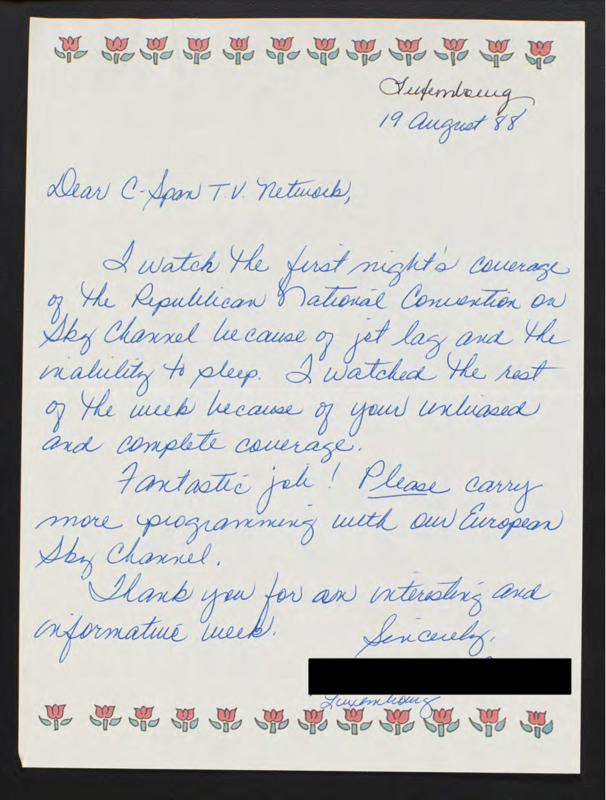 Luxembourg
19 August 88
Dear C-Span T.V. Network,
I watch the first night's coverage
of the Republican National Convention on
Sky Channel because of jet lag and the
inability to sleep. I watched the rest
of the week because of your unbiased
and complete coverage.
Fantastic job! Please carry
more programming with our European
Sky Channel.
Thank you for an interesting and
informative week.
Sincerely,
Luxembourg